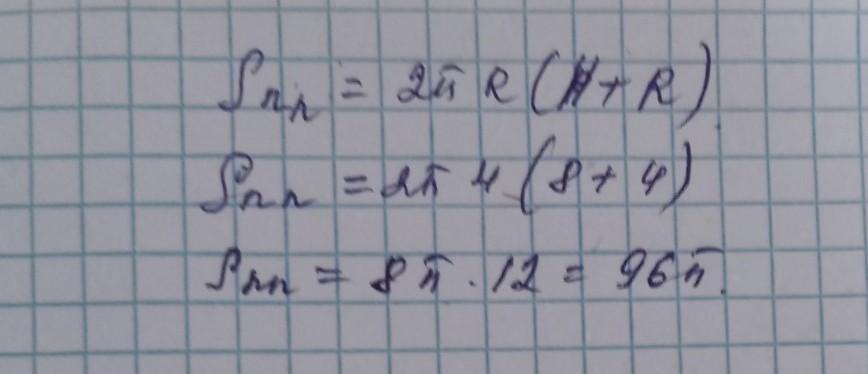 Sпп = 2π R (H + R)
Sпп = 2π 4 (8 + 4)
Sпп = 8π · 12 = 96π.